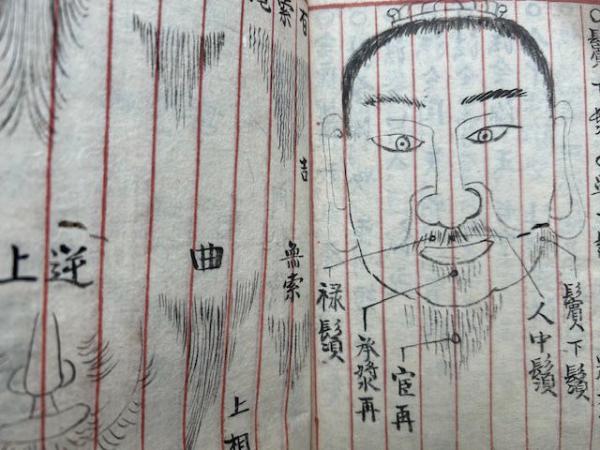 鬢下鬚
人中鬚
宦再
承漿再
禄鬚
吉
無索
上相
曲
逆
上